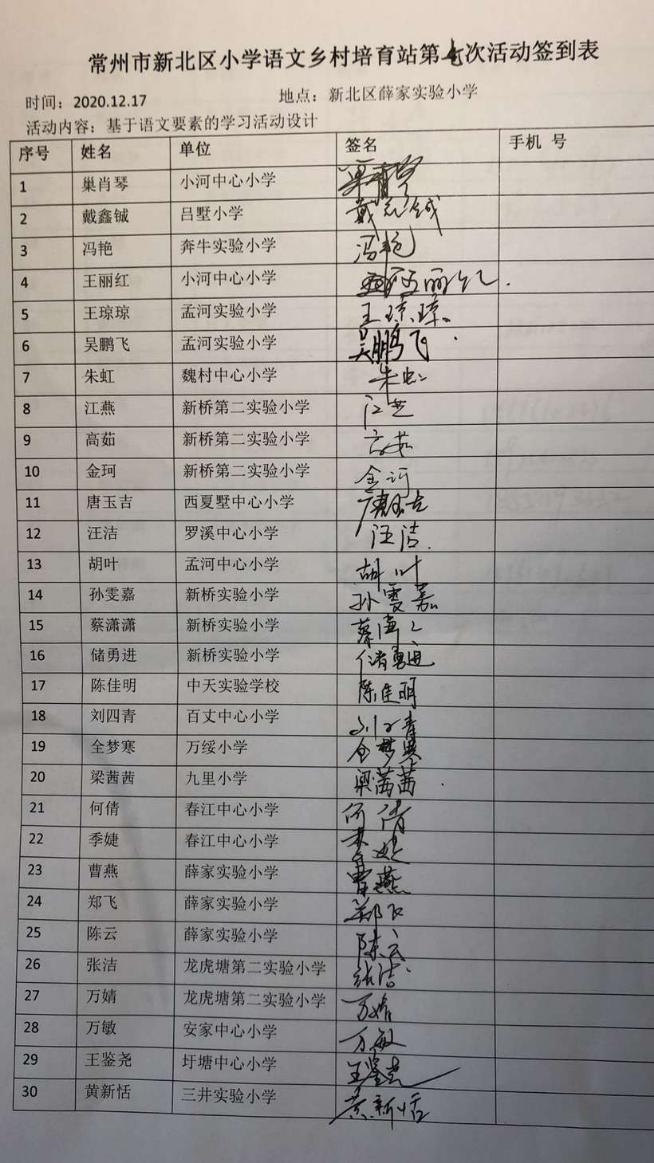 常州市新北区小学语文乡村培育站第 次活动签到表
时间：2020.12.17 地点：新北区薛家实验小学
活动内容：基于语文要素的学习活动设计
序号 姓名 单位 签名 手机 号
1 巢肖琴 小河中心小学 巢肖琴
2 戴鑫铖 吕墅小学 戴鑫铖
3 冯艳 奔牛实验小学 冯艳
4 王丽红 小河中心小学 王丽红
5 王琼琼 孟河实验小学 王琼琼
6 吴鹏飞 孟河实验小学 吴鹏飞
7 朱虹 魏村中心小学 朱虹
8 江燕 新桥第二实验小学 江燕
9 高茹 新桥第二实验小学 高茹
10 金珂 新桥第二实验小学 金珂
11 唐玉吉 西夏墅中心小学 唐玉吉
12 汪洁 罗溪中心小学 汪洁
13 胡叶 孟河中心小学 胡叶
14 孙雯嘉 新桥实验小学 孙雯嘉
15 蔡潇潇 新桥实验小学 蔡潇潇
16 储勇进 新桥实验小学 储勇进
17 陈佳明 中天实验学校 陈佳明
18 刘四青 百丈中心小学 刘四青
19 全梦寒 万绥小学 全梦寒
20 梁茜茜 九里小学 梁茜茜
21 何倩 春江中心小学 何倩
22 季婕 春江中心小学 季婕
23 曹燕 薛家实验小学 曹燕
24 郑飞 薛家实验小学 郑飞
25 陈云 薛家实验小学 陈云
26 张洁 龙虎塘第二实验小学 张洁
27 万婧 龙虎塘第二实验小学 万婧
28 万敏 安家中心小学 万敏
29 王鉴尧 圩塘中心小学 王鉴尧
30 黄新恬 三井实验小学 黄新恬